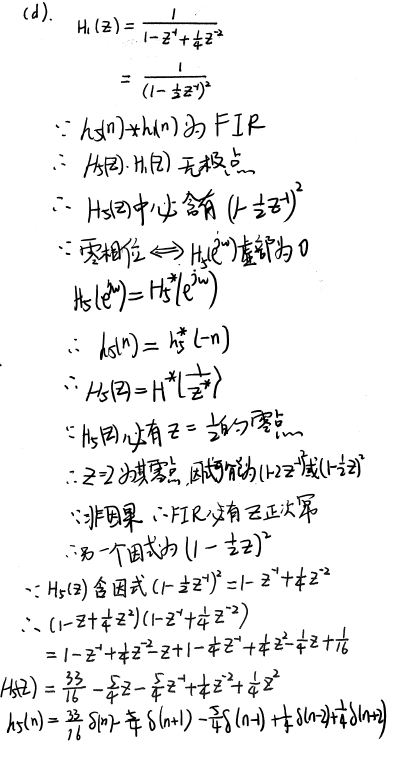 (d). H₁(z) = 1/(1-z⁻¹+¼z⁻²)
= 1/(1-½z⁻¹)²
∵ h₅(n)*h₁(n) 为 FIR
∴ H₅(z)·H₁(z) 无极点
∴ H₅(z)中必含有 (1-½z⁻¹)²
∵ 零相位 ⇔ H₅(e^{jω})虚部为0
H₅(e^{jω}) = H₅*(e^{jω})
∴ h₅(n) = h₅*(-n)
∴ H₅(z) = H*(1/z*)
∵ H₅(z)必有 z = ½的零点
∴ z=2为其零点,因式可能为(1-2z⁻¹)²或(1-½z)²
∵非因果 ∴FIR必有z正次幂
∴另一个因式为 (1-½z)²
∵ H₅(z)含因式(1-½z⁻¹)² = 1-z⁻¹+¼z⁻²
∴ (1-z+¼z²)(1-z⁻¹+¼z⁻²)
= 1-z⁻¹+¼z⁻²-z+1-¼z⁻¹+¼z²-¼z+1/16
H₅(z) = 33/16 - 5/4z - 5/4z⁻¹ + ¼z⁻² + ¼z²
h₅(n) = 33/16 δ(n) - 5/4 δ(n+1) - 5/4 δ(n-1) + ¼ δ(n-2) + ¼ δ(n+2)